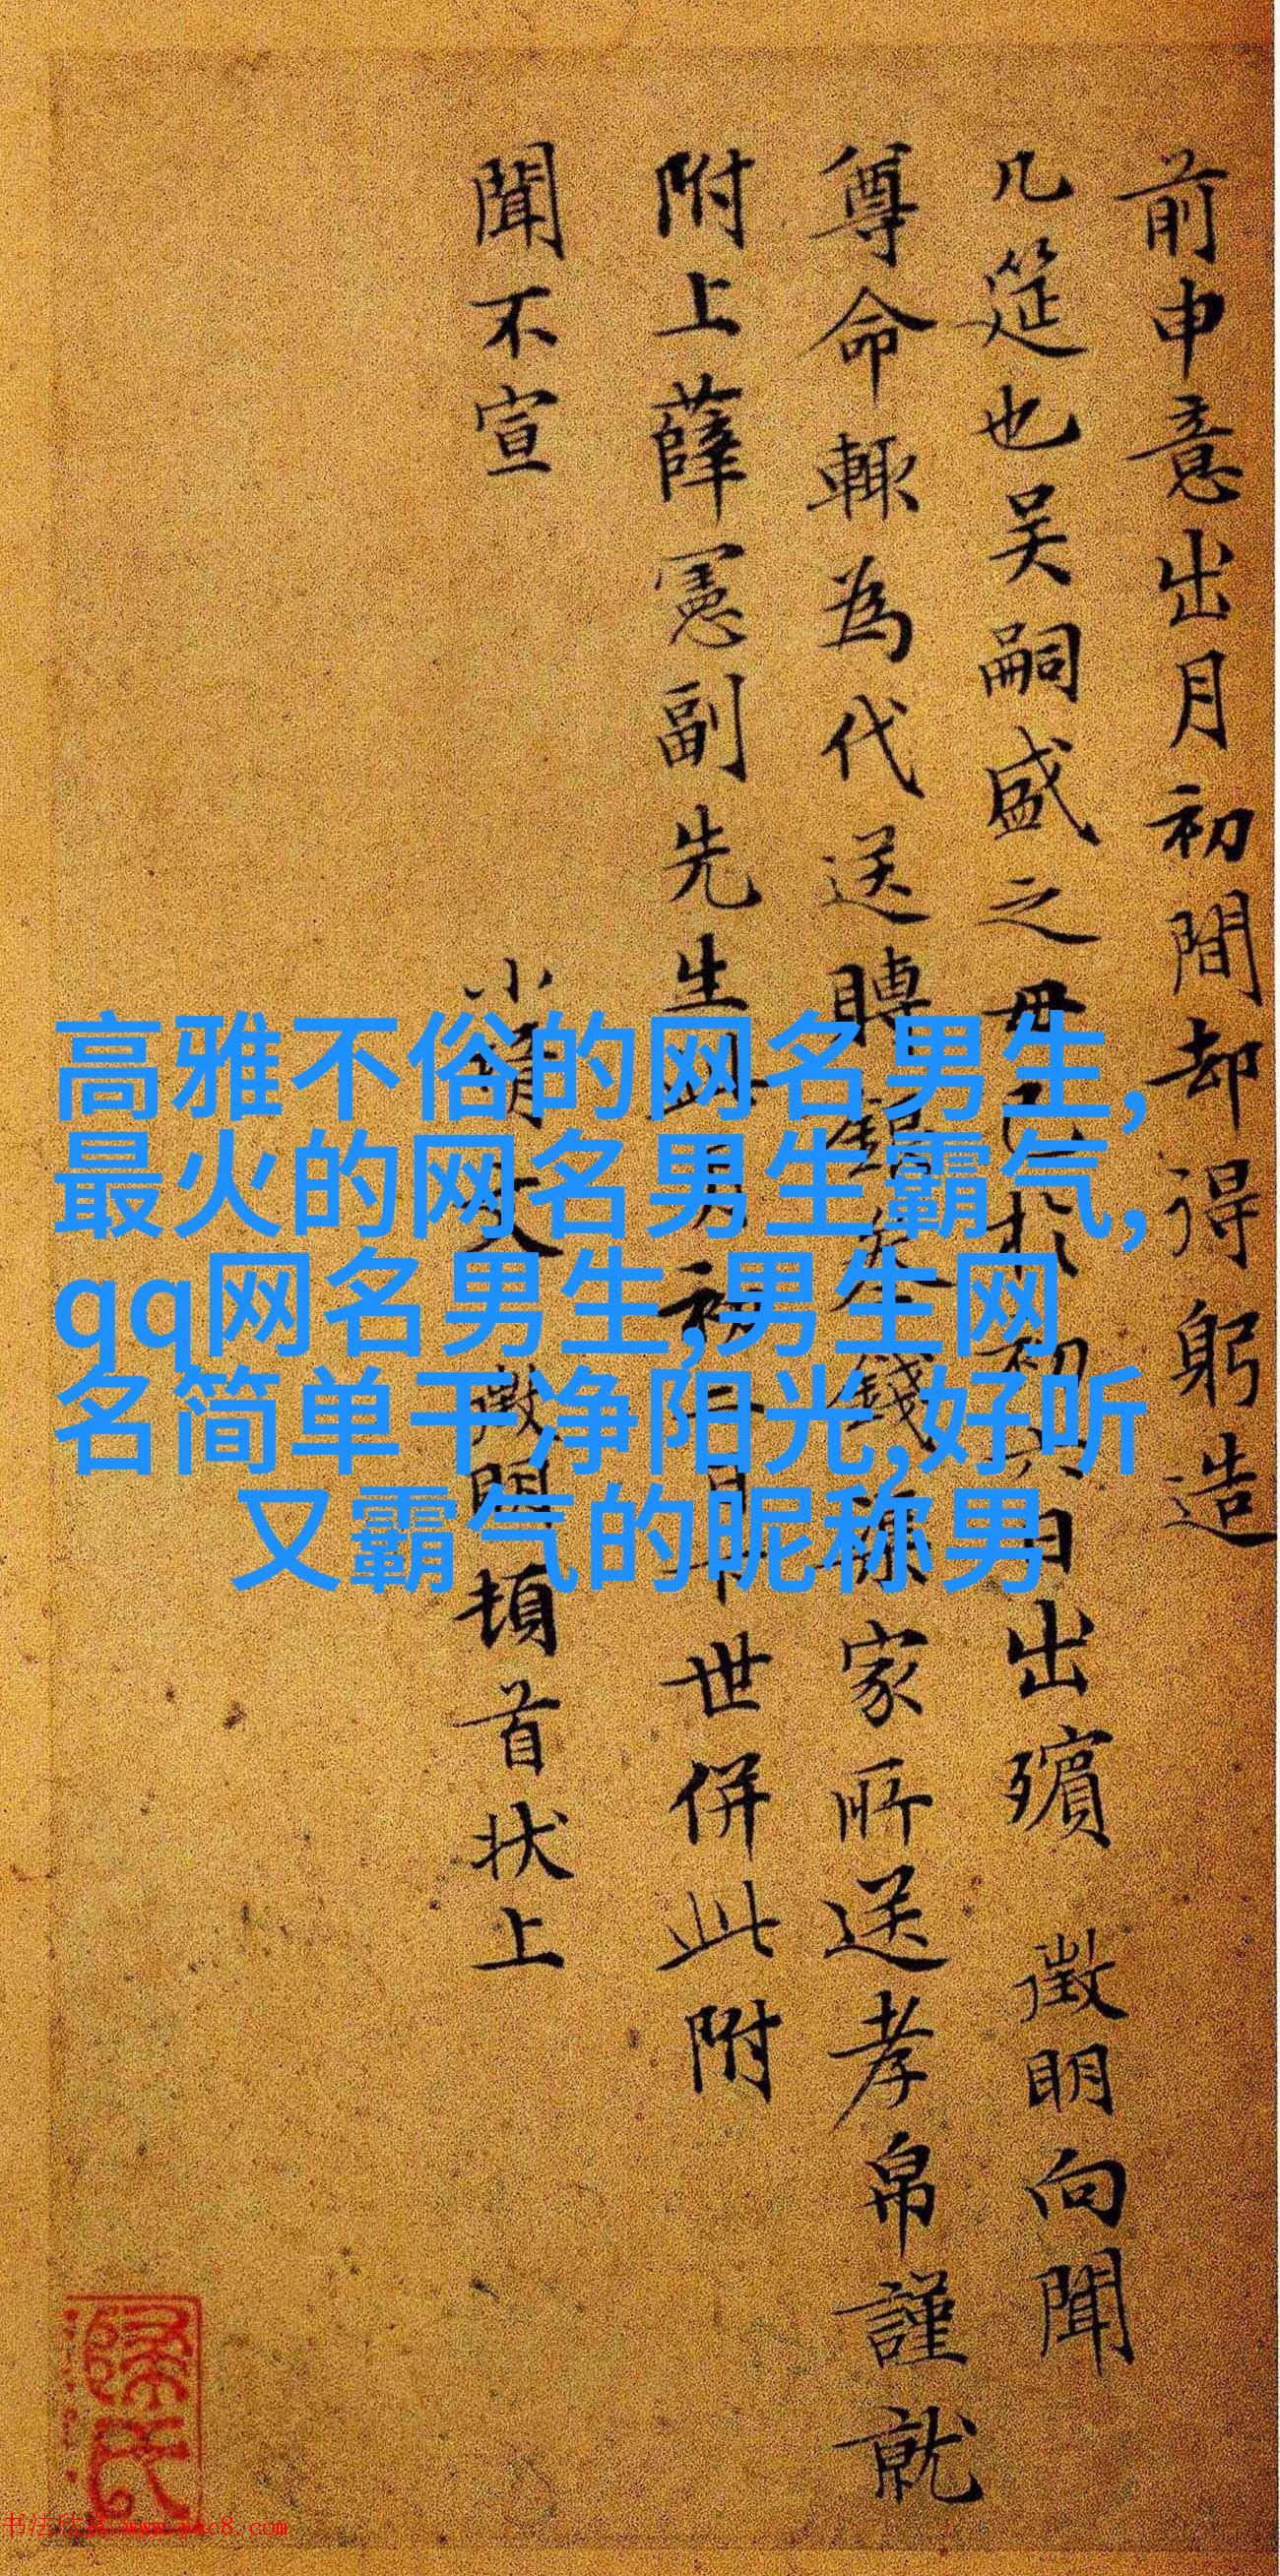 前申意出月初間却得躬造
几筵也吴嗣盛之母已於初六日出殯 徵明向聞
尊命輒為代送賻錢家所送孝帛謹就
附上薛憲副先生初世併此附
聞不宣
徵明頓首狀上
高雅不俗的网名男生,
最火的网名男生霸气,
qq网名男生,男生网
名简单干净阳光,好听
又霸气的昵称男
书法欣赏 www.yac8.com